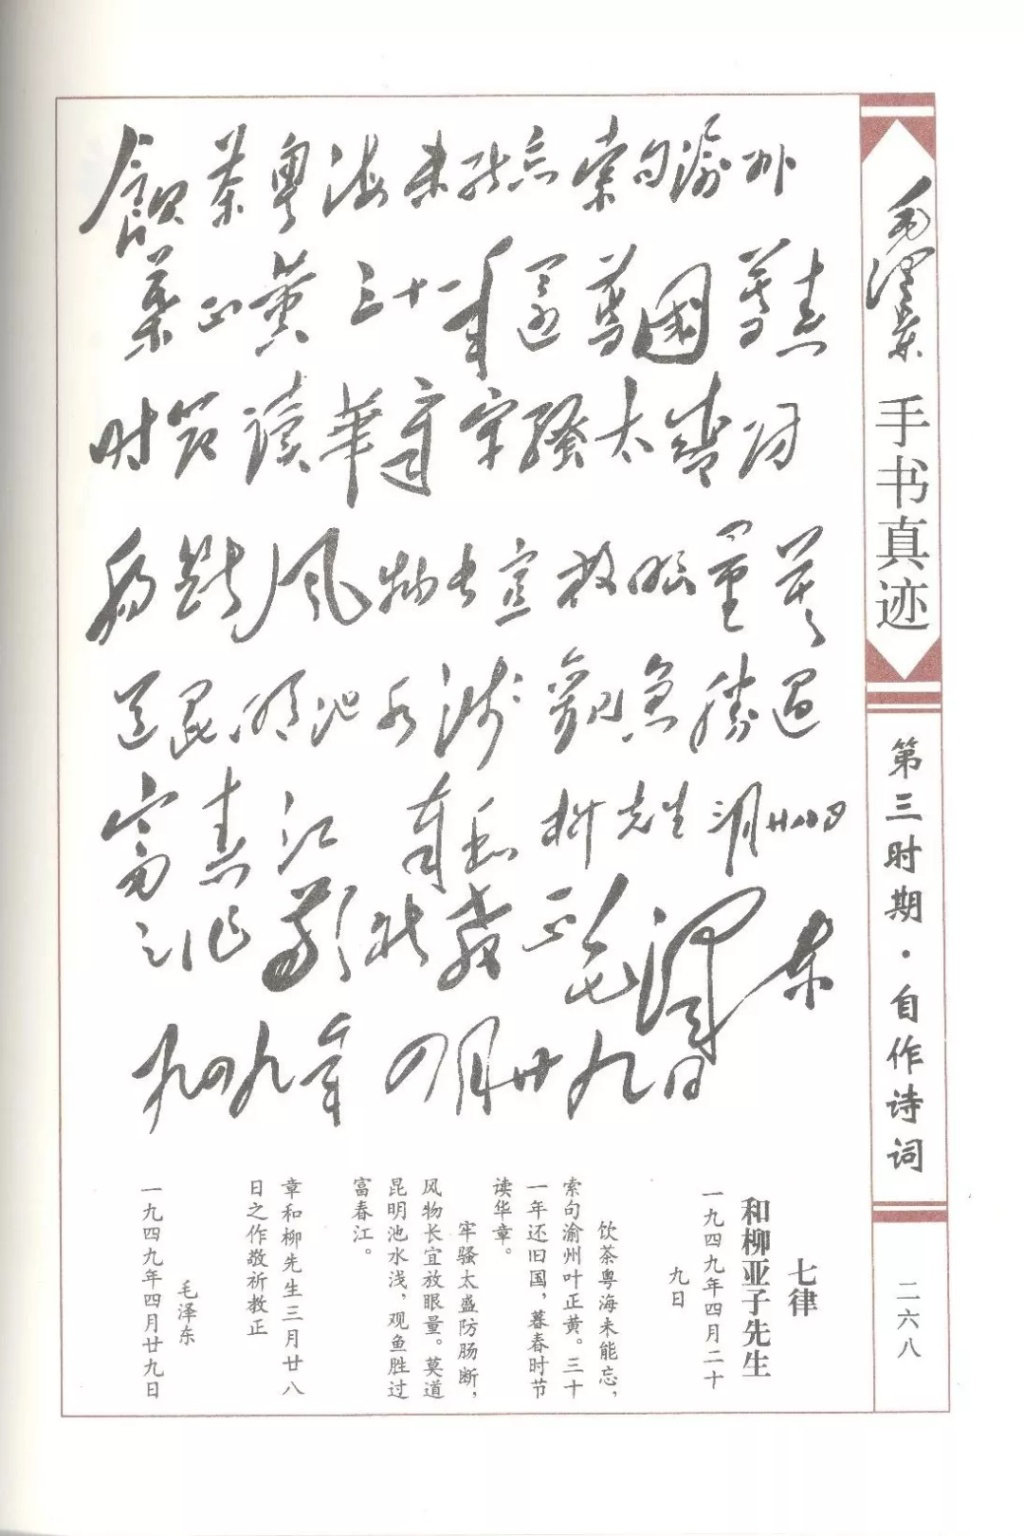 飲茶粤海未能忘索句渝州
葉正黄三十一年還舊國暮春
时节读華章牢騷太盛防
肠断风物长宜放眼量莫
道昆明池水浅觀魚勝過
富春江 奉和柳先生三月廿八日
之作敬祈教正 毛泽东
一九四九年四月廿九日
毛泽东 手书真迹
第三时期·自作诗词
二六八
七律
和柳亚子先生
一九四九年四月二十
九日
饮茶粤海未能忘，
索句渝州叶正黄。三十
一年还旧国，暮春时节
读华章。
牢骚太盛防肠断，
风物长宜放眼量。莫道
昆明池水浅，观鱼胜过
富春江。
章和柳先生三月廿八
日之作敬祈教正
毛泽东
一九四九年四月廿九日